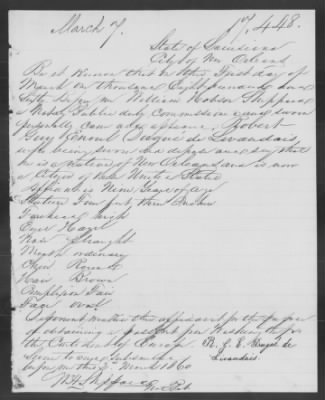 March 7. 17,448.
State of Louisiana
City of New Orleans
Be it Known that on this First day of
March one thousand Eight hundred and
Sixty before me William Hobson Shippard
a Notary Public duly Commissioned and sworn
personally Came and appeared Robert
Guy Ernest Dugué de Livaudais,
who being sworn did depose and say that
he is a native of New Orleans and is now
a Citizen of the United States
Nine Years of age
Stature Four feet three Inches
Forehead high
Eyes Hazel
Nose Straight
Mouth ordinary
Chin Round
Hair Brown
Complexion Fair
Face oval
Deponent makes this affidavit for the purpose
of obtaining a passport from Washington for
the Continent of Europe. R. G. E. Dugué de
Livaudais.
Sworn to and Subscribed
before me this 1st March 1860
Not. Pub.